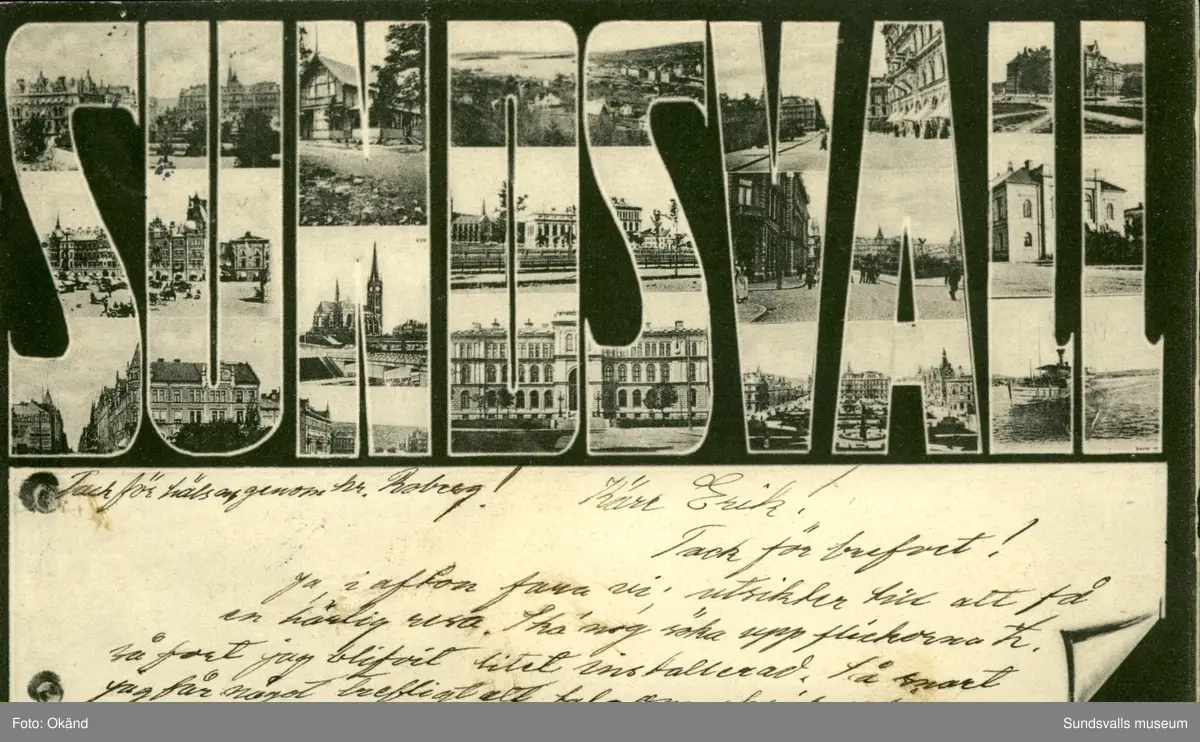 SUNDSVALL
Tack för hälsng genom hr. Roberg!
Käre Erik!
Tack för brefvet!
Ja i afton fara vi. utsikter till att få
en härlig resa. Ska nog söka upp flickorna K.
så fort jag blifvit litet installerad. Så snart
jag får något trefligt att
Foto: Okänd
Sundsvalls museum